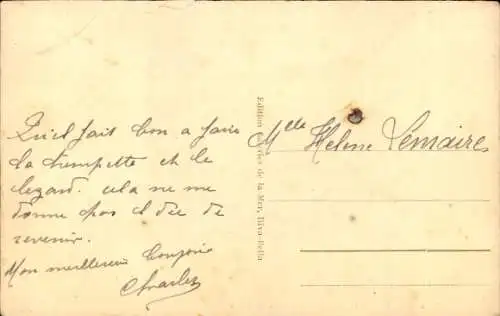 Qu'il fait bon a faire
la trempette et le
lezard. cela ne me
donne pas d'idée de
revenir.
Mon meilleur bonjour
Charles
Edition de la Mer, Riva-Bella
Mlle Helene Lemaire